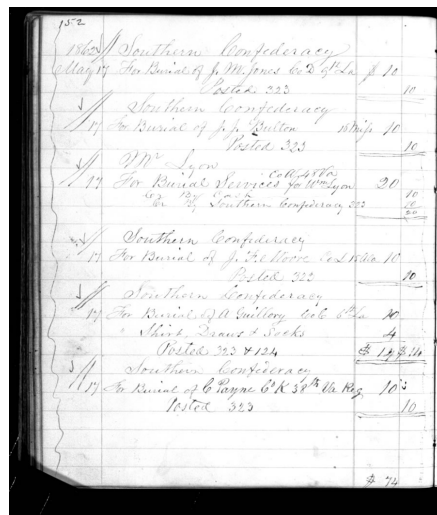 152
1862 Southern Confederacy
May 17 For Burial of J. M. Jones Co D 9th La $ 10
Posted 323 10
Southern Confederacy
17 For Burial of J. J. Bulton 18 Miss 10
Posted 323 10
Mr Lyon
Co A 48 Va
17 For Burial Services for Wm Lyon 20
Cr By Cash 10
Cr By Southern Confederacy 323 10
20
Southern Confederacy
17 For Burial of J. F. Moore Co D 18 Va 10
Posted 323 10
Southern Confederacy
17 For Burial of A Guillory Co C 6th La 10
" Shirt, Draws & Socks 4
Posted 323 & 124 $ 14 $ 14
Southern Confederacy
17 For Burial of C Payne Co K 38th Va Reg 10
Posted 323 10
$ 74